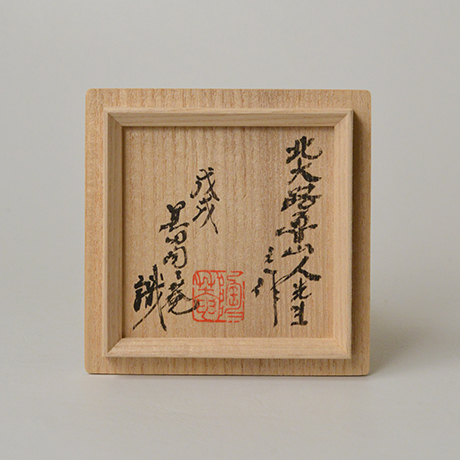 北大路魯山人先生
之作
戊戌
黒田陶々菴
識